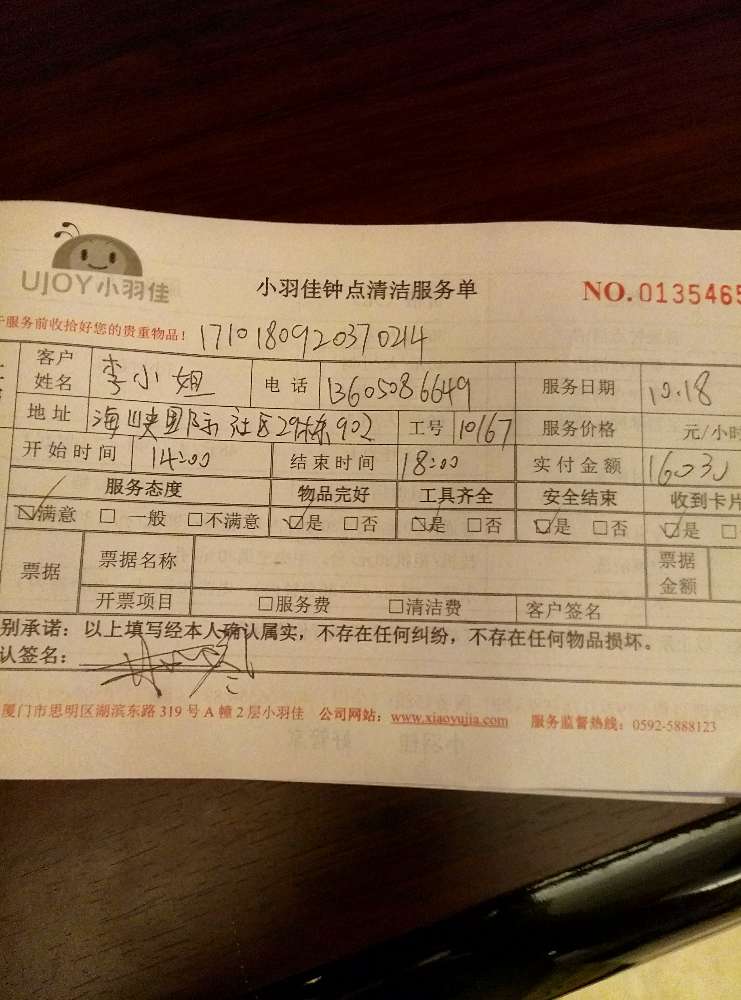 UJOY小羽佳
小羽佳钟点清洁服务单 NO.0135465
服务前收拾好您的贵重物品! 1710180920370214
客户姓名 李小姐 电话 13605086649 服务日期 10.18
地址 海峡国际社区29栋902 工号 10167 服务价格 元/小时
开始时间 14:00 结束时间 18:00 实付金额
服务态度 物品完好 工具齐全 安全结束 收到卡片
☑满意 □一般 □不满意 ☑是 □否 ☑是 □否 ☑是 □否 ☑是 □
票据 票据名称 票据金额
开票项目 □服务费 □清洁费 客户签名
别承诺：以上填写经本人确认属实，不存在任何纠纷，不存在任何物品损坏。
认签名：
厦门市思明区湖滨东路319号A幢2层小羽佳 公司网站：www.xiaoyujia.com 服务监督热线：0592-5888123